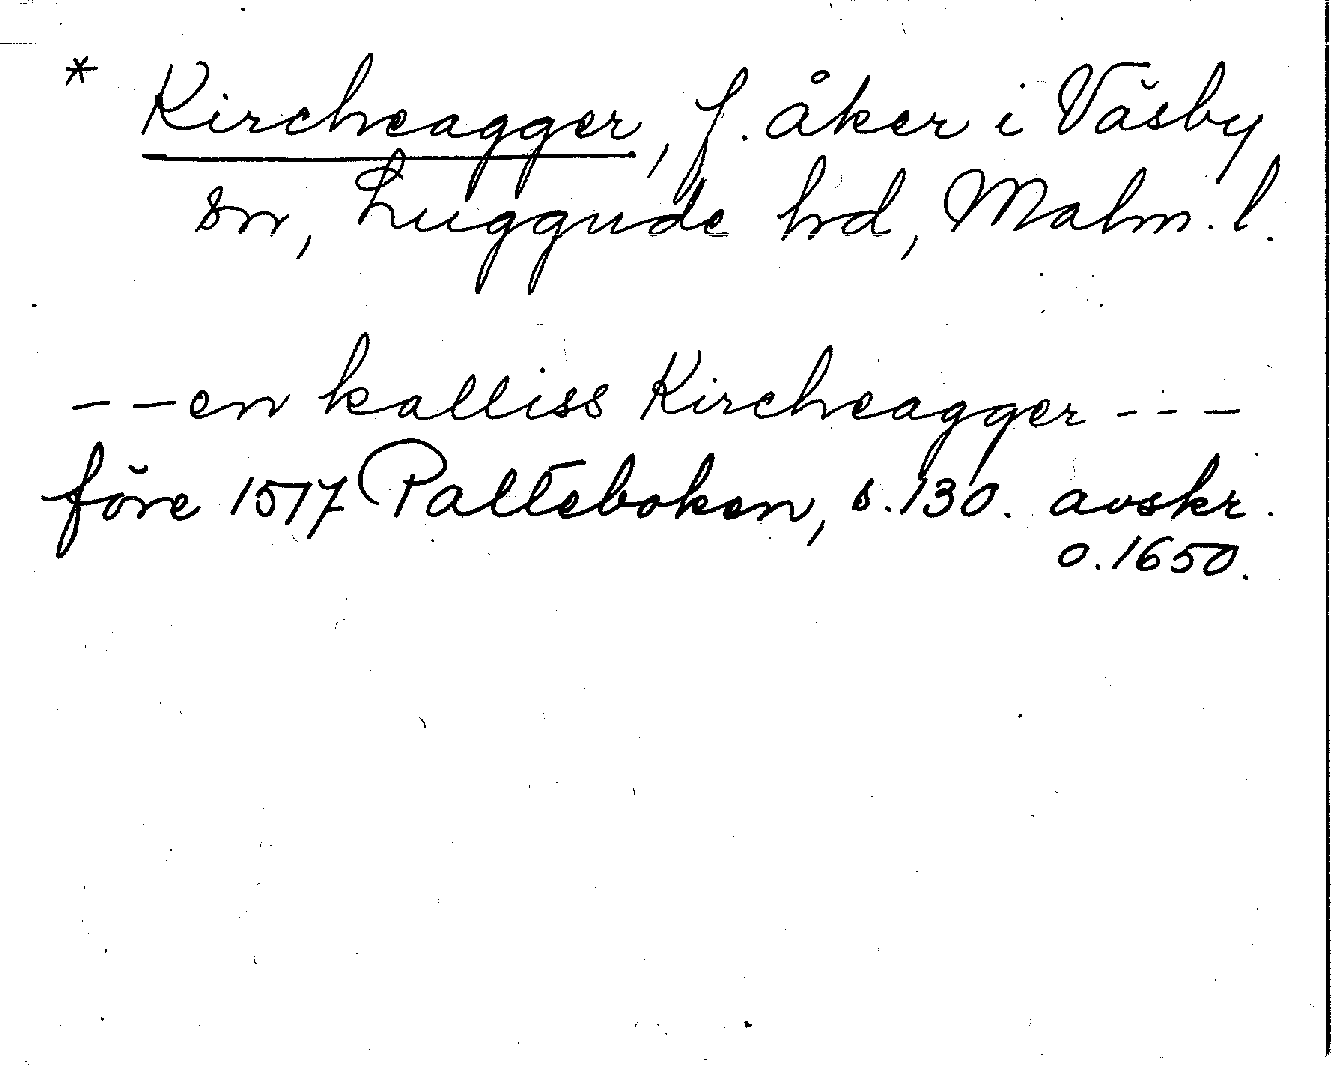 * Kircheagger, f. åker i Väsby
sn, Luggude hd, Malm. l.
--en kalliss Kircheagger ---
före 1517 Palteboken, s. 130. avskr.
o. 1650.